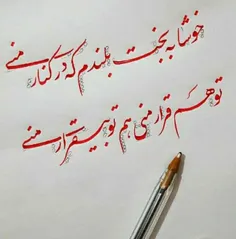 خوشا به بخت بلندم که در کنار منی
تو هم قرار منی هم تو بیقرار منی